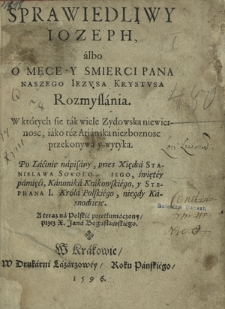 SPRAWIEDLIWY
IOZEPH,
álbo
O MĘCE Y SMIERCI PANA
NASZEGO IEZVSA KRYSTVSA
Rozmyślánia.
W których sie ták wiele Zydowska niewier-
ność, iáko też Aryáńska niezbożność
przekonywa y wytyka.
Po Łáćinie nápisány, przez Xiędzá STA-
NISŁAWA SOKOŁO IEGO, świętey
pámięći, Kánoniká Krákowskiego, y STE-
PHANA I. Krolá Polskiego, niegdy Ka-
znodzieie.
A teraz ná Polskie przetłumáczony,
przez X. Janá
W Krákowie,
W Drukárni Łázárzowey, Roku Páńskiego,
1596.